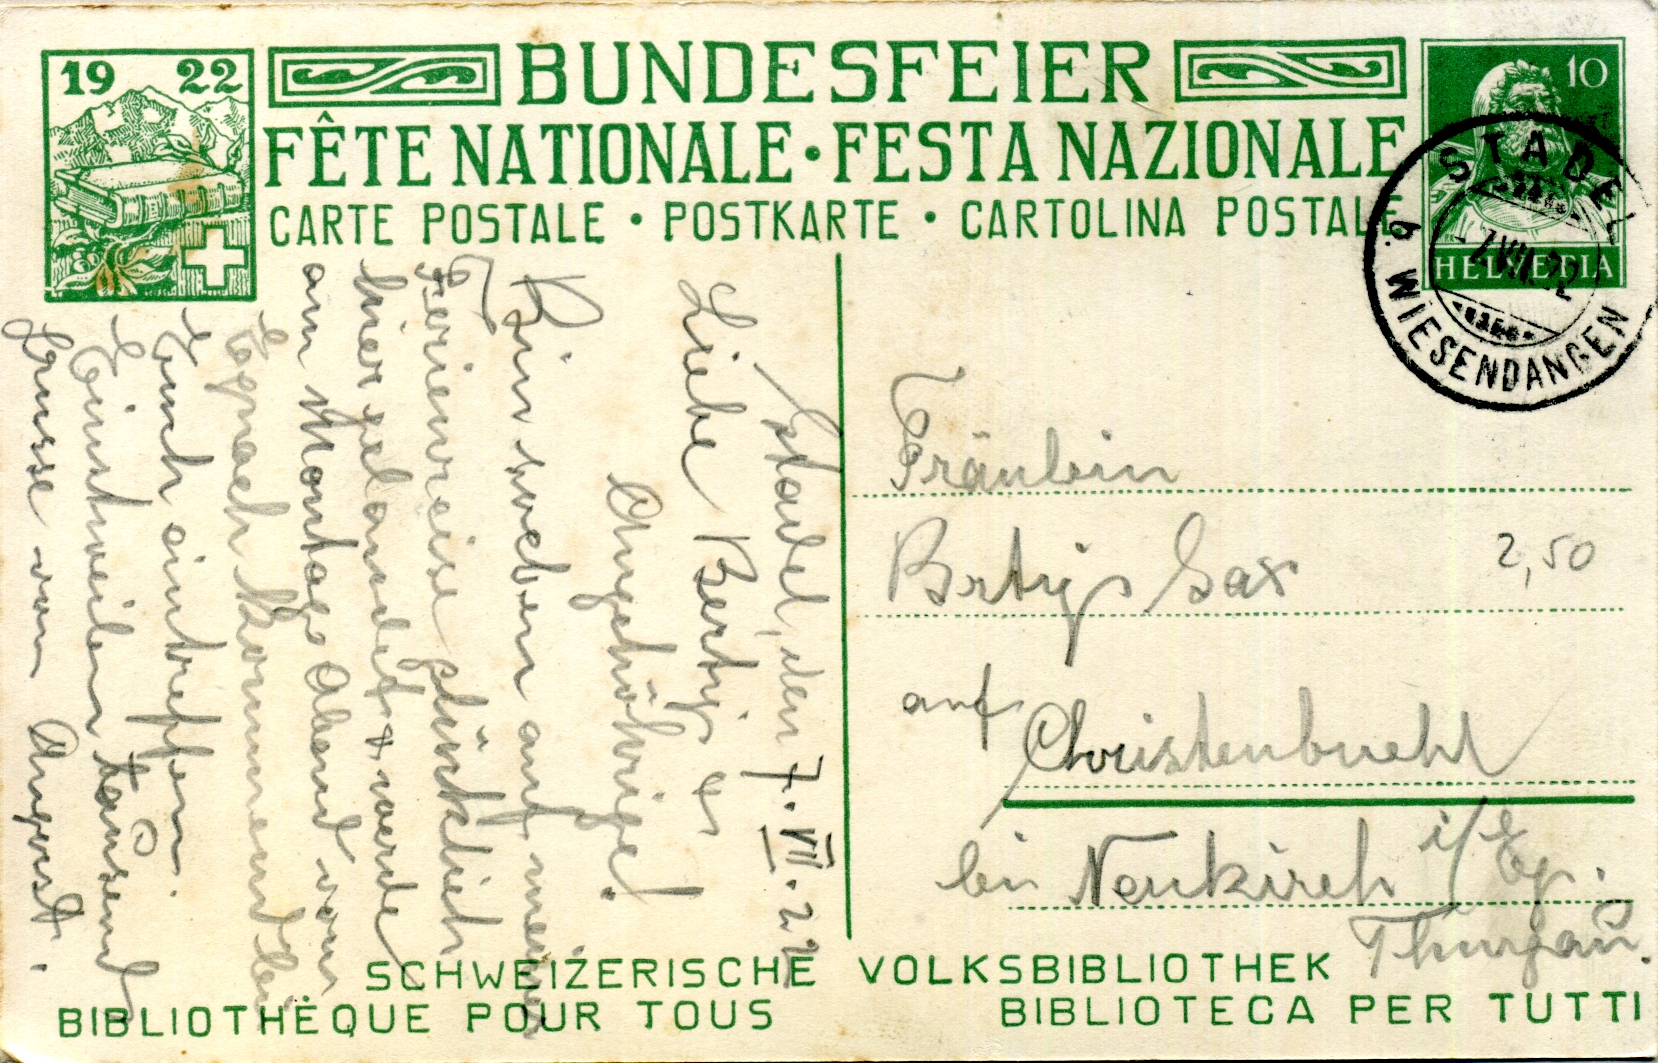 19 22
BUNDESFEIER
FÊTE NATIONALE • FESTA NAZIONALE
CARTE POSTALE • POSTKARTE • CARTOLINA POSTALE
10
HELVETIA
STADEL
b. WIESENDANGEN
7.VII.22
Stadel, den 7. VII. 22
Liebe Bertij &
Angehörige!
Bin soeben auf meiner
Ferienreise glücklich
hier gelandet & werde
am Montag Abend von
Egnach kommend bei
Euch eintreffen.
Einstweilen tausend
Grüsse von August.
Fräulein
Bertij Sax
2,50
auf Christenbuehl
bei Neukirch i/Eg.
Thurgau.
SCHWEIZERISCHE VOLKSBIBLIOTHEK
BIBLIOTHÈQUE POUR TOUS BIBLIOTECA PER TUTTI